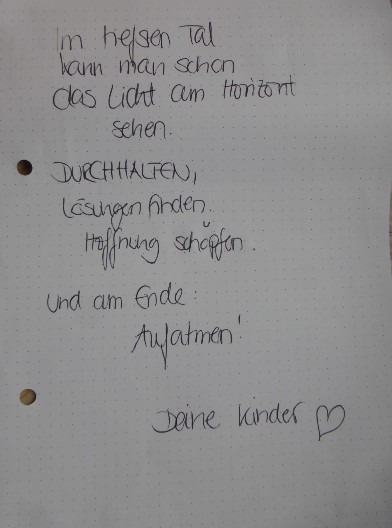 Im tiefsen Tal
kann man schon
das Licht am Horizont
sehen.
DURCHHALTEN,
Lösungen finden.
Hoffnung schöpfen.
Und am Ende:
Aufatmen!
Deine Kinder ♡